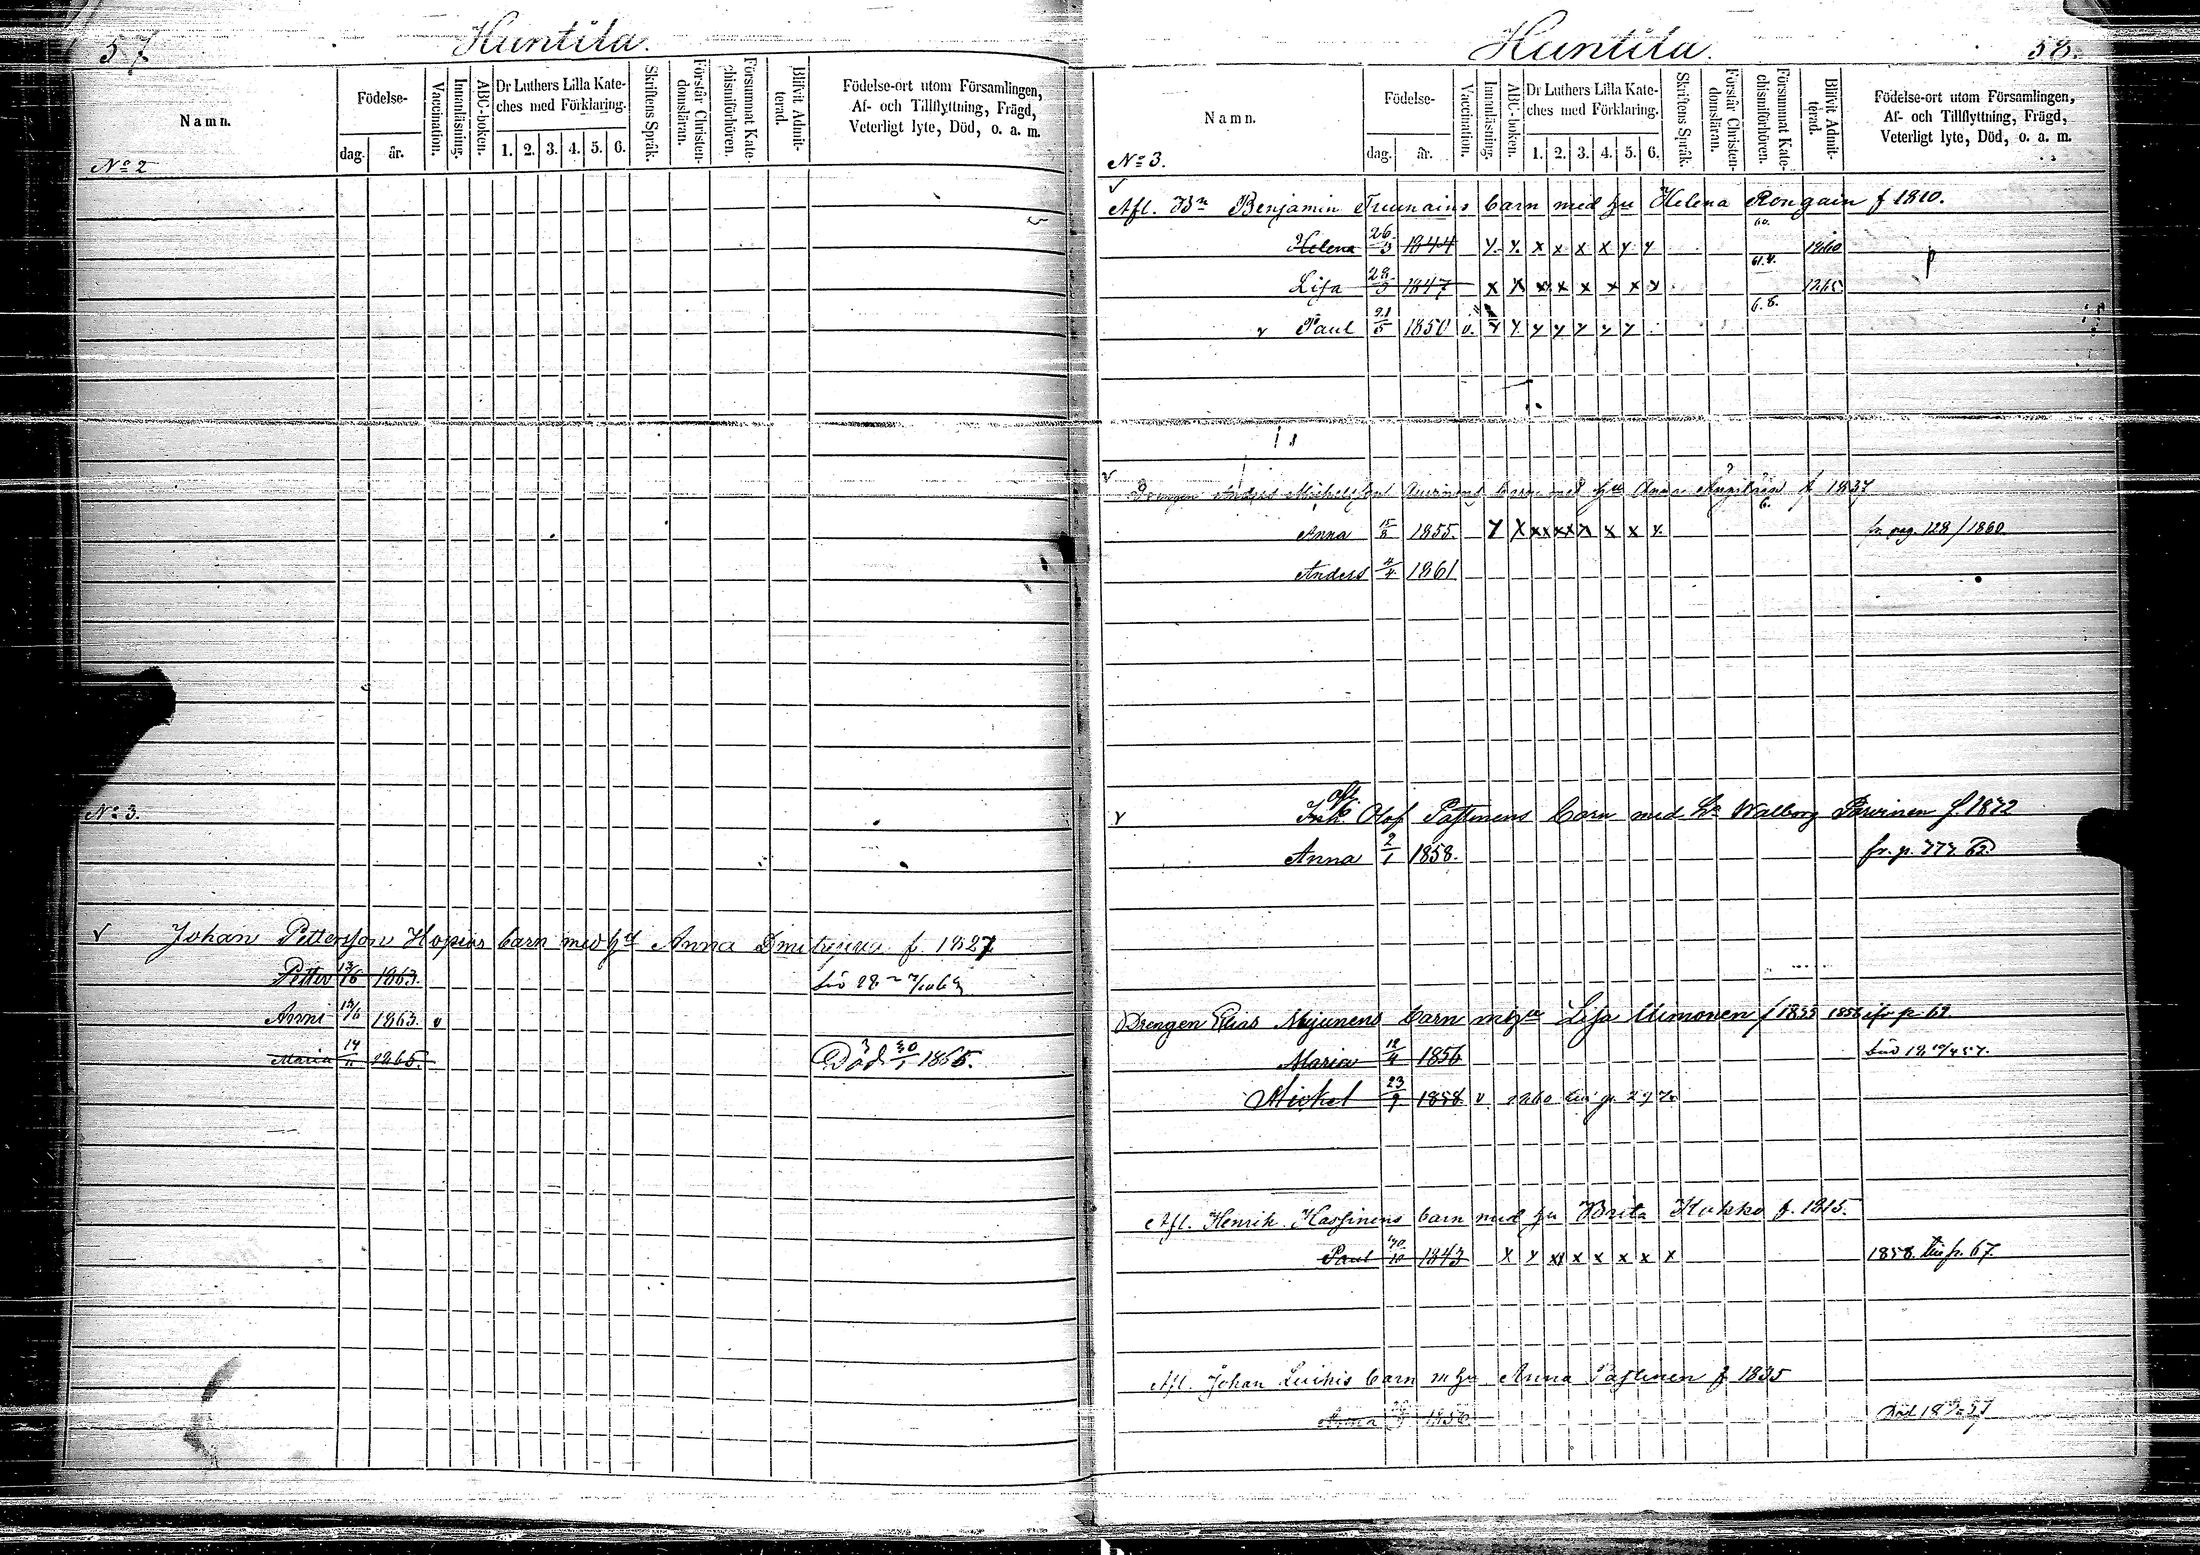 57
Huntila.
Namn.
Födelse-
dag.
år.
Vaccination.
Innanläsning.
ABC-boken.
Dr Luthers Lilla Kate-
ches med Förklaring.
1. 2. 3. 4. 5. 6.
Skriftens Språk.
Förstår Christen-
domsläran.
Försummat Kate-
chismiförhören.
Blifvit Admit-
terad.
Födelse-ort utom Församlingen,
Af- och Tillflyttning, Frägd,
Veterligt lyte, Död, o. a. m.
No 2
No 3.
Johan Pettersson Barn med Anna f. 1827
Petter 13/6 1863.
Anni 13/6 1863. v
Maria 14/11 1865. Död 30/1 1866.
Huntila.
58.
Namn.
Födelse-
dag.
år.
Vaccination.
Innanläsning.
ABC-boken.
Dr Luthers Lilla Kate-
ches med Förklaring.
1. 2. 3. 4. 5. 6.
Skriftens Språk.
Förstår Christen-
domsläran.
Försummat Kate-
chismiförhören.
Blifvit Admit-
terad.
Födelse-ort utom Församlingen,
Af- och Tillflyttning, Frägd,
Veterligt lyte, Död, o. a. m.
No 3.
Afl. Bn Benjamin Truunains barn med hu Helena Rongain f 1810.
Helena 26/3 1844 1860
Lisa 28/3 1847 1865
v Paul 21/5 1850 v.
Drengen Anders barn med hu Anna f 1837
Anna 15/8 1855. fr. pag. 128/1860.
Anders 4/4 1861
Olof Pastinens barn med Walborg Parvinen f. 1832
Anna 2/1 1858. fr. p. 377. 62
Drengen Elias Mujunens barn m hu Lisa Uimonen f 1835
Maria 12/4 1856
Mickel 23/9 1858. v. 1860
Afl. Henrik Hassinens barn med hu Brita Kukko f. 1815.
Paul 30/10 1843 x x x x x x x x 1858. till p. 67.
Afl. Johan barn m hu Anna Pastinen f 1835
Anna 1856